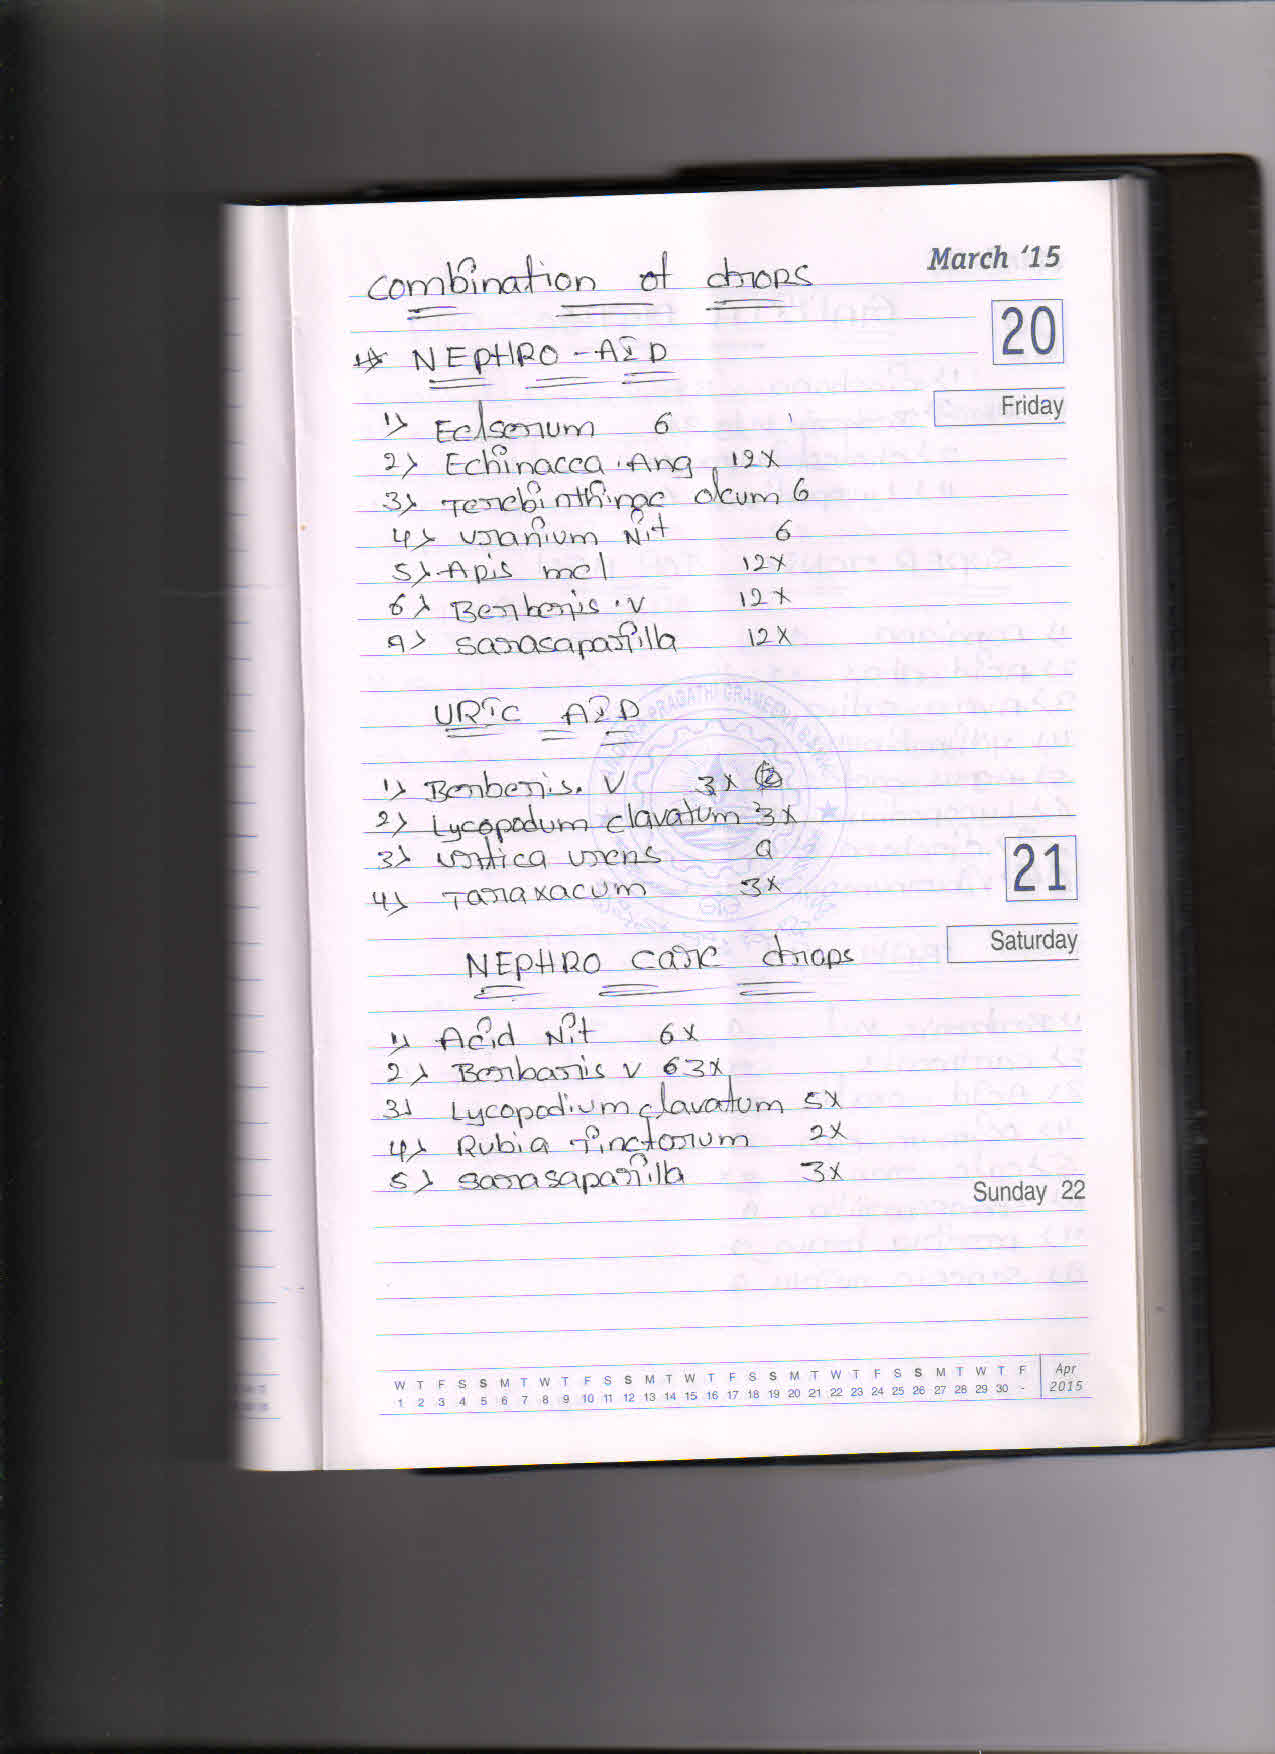 March '15
combination of drops
20
1) NEPHRO-AID
Friday
1) Eelserum 6
2) Echinacca. Ang 12x
3) Terebinthinae oleum 6
4) Uranium Nit 6
5) Apis mel 12x
6) Berberis. V 12x
9) Sarasaparilla 12x
PRAGATHI GRAMEENA BANK
URIC AID
1) Berberis. V 3x
2) Lycopodum clavatum 3x
3) Urtica urens Q
21
4) Taraxacum 3x
Saturday
NEPHRO care drops
1) Acid Nit 6x
2) Berbaris V 63x
3) Lycopodium clavatum 5x
4) Rubia Tinctorum 2x
5) Sarasaparilla 3x
Sunday 22
W T F S S M T W T F S S M T W T F S S M T W T F S S M T W T F Apr
1 2 3 4 5 6 7 8 9 10 11 12 13 14 15 16 17 18 19 20 21 22 23 24 25 26 27 28 29 30 - 2015